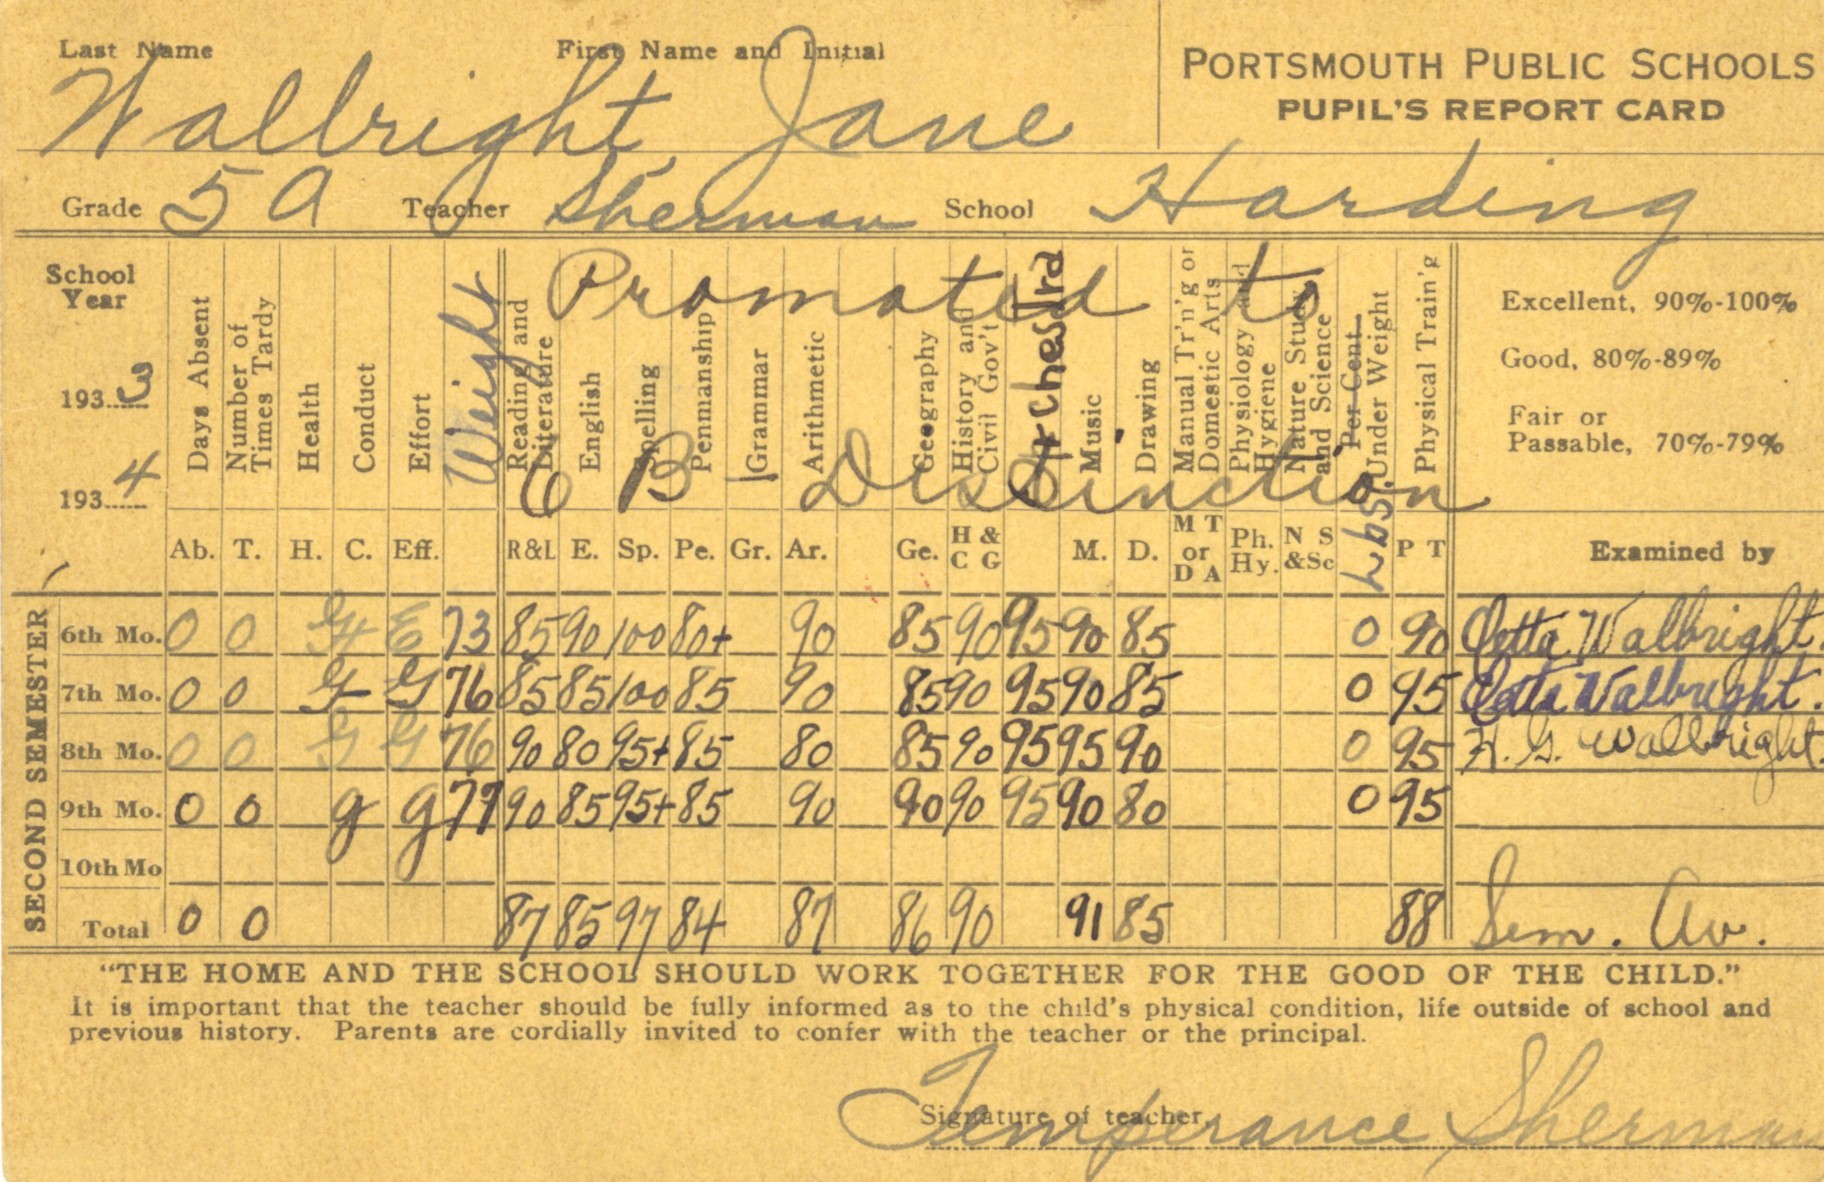 Last Name First Name and Initial
Walbright, Jane
PORTSMOUTH PUBLIC SCHOOLS
PUPIL'S REPORT CARD
Grade 5 A Teacher Sherman School Harding
School Year
1933
1934
Days Absent
Number of Times Tardy
Health
Conduct
Effort
Weight
Reading and Literature
English
Spelling
Penmanship
Grammar
Arithmetic
Geography
History and Civil Gov't
Orchestra
Music
Drawing
Manual Tr'n'g or Domestic Arts
Physiology and Hygiene
Nature Study and Science
Per Cent Under Weight
Lbs.
Physical Train'g
Promoted to
6 B - Distinction
Excellent, 90%-100%
Good, 80%-89%
Fair or
Passable, 70%-79%
Ab. T. H. C. Eff. R&L E. Sp. Pe. Gr. Ar. Ge. H & C G M. D. M T or D A Ph. Hy. N S &Sc P T Examined by
SECOND SEMESTER
6th Mo. 0 0 G+ E 73 85 90 100 80+ 90 85 90 95 90 85 0 90 Etta Walbright.
7th Mo. 0 0 G- G 76 85 85 100 85 90 85 90 95 90 85 0 95 Etta Walbright.
8th Mo. 0 0 G G 76 90 80 95+ 85 80 85 90 95 95 90 0 95 H. G. Walbright.
9th Mo. 0 0 g g 77 90 85 95+ 85 90 90 90 95 90 80 0 95
10th Mo
Total 0 0 87 85 97 84 87 86 90 91 85 88 Sem. Av.
"THE HOME AND THE SCHOOL SHOULD WORK TOGETHER FOR THE GOOD OF THE CHILD."
It is important that the teacher should be fully informed as to the child's physical condition, life outside of school and
previous history. Parents are cordially invited to confer with the teacher or the principal.
Signature of teacher, Temperance Sherman